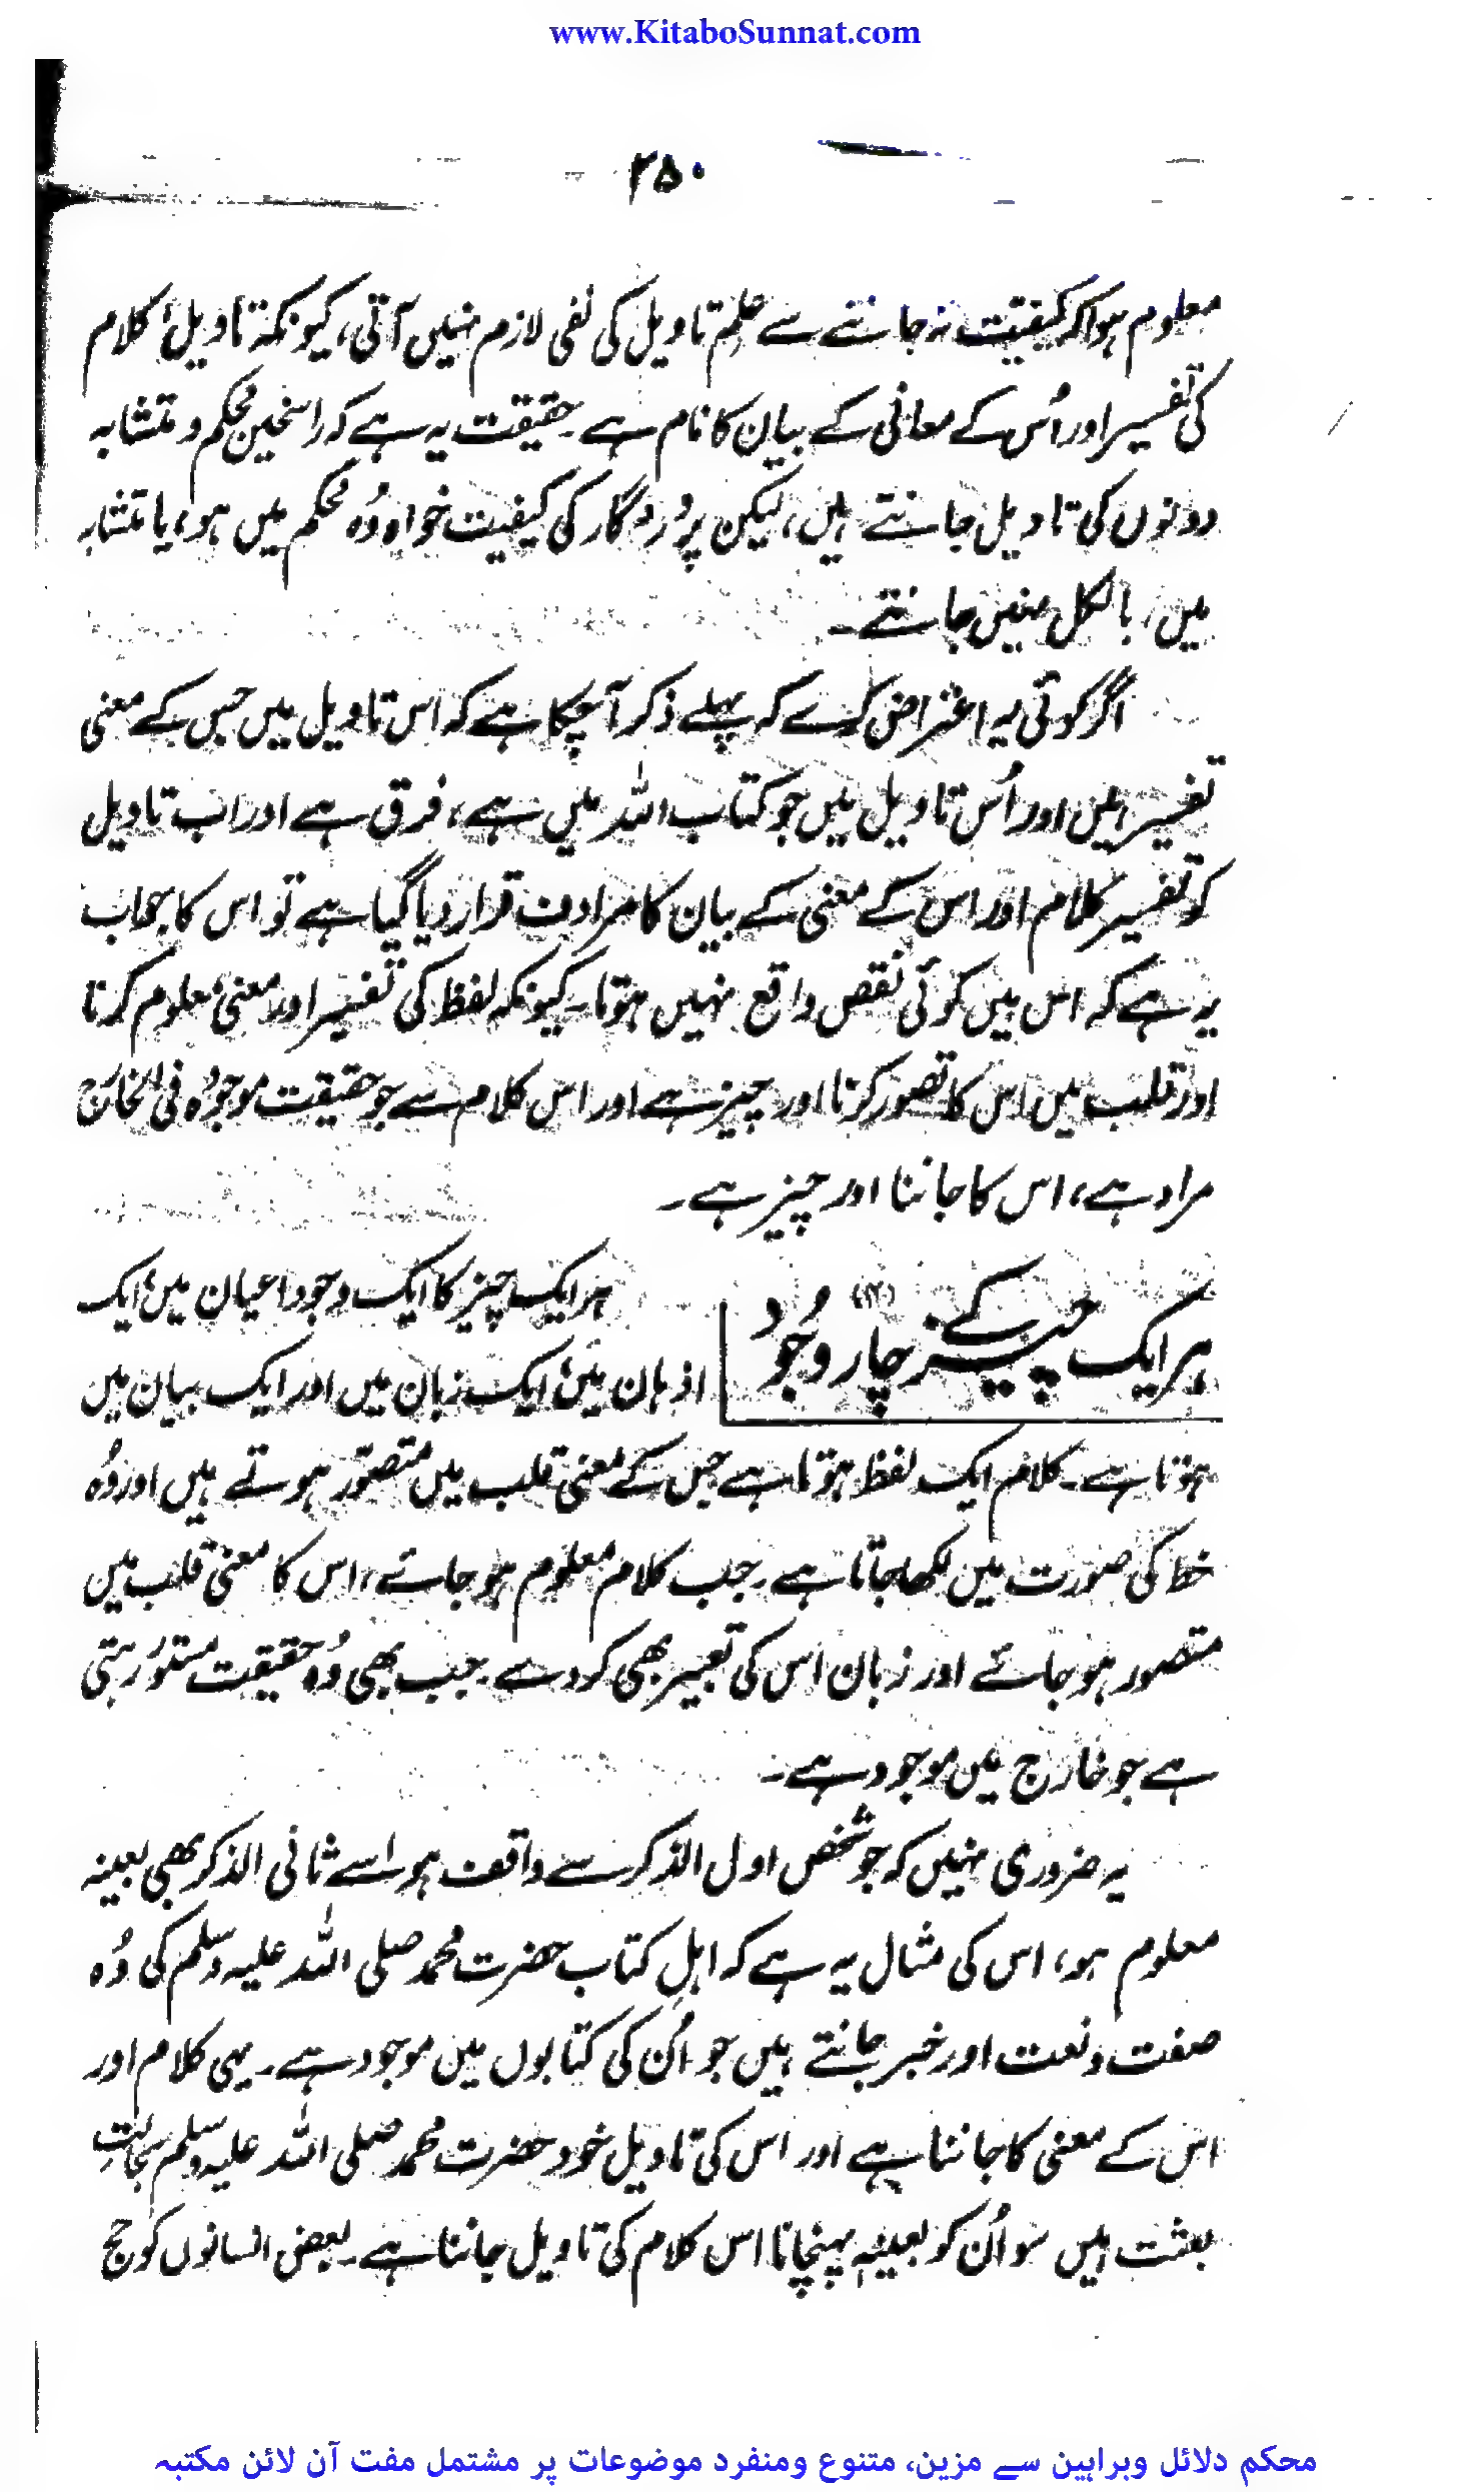 www.KitaboSunnat.com
۲۵۰
معلوم ہوا کہ کیفیّت نہ جاننے سے علمِ تاویل کی نفی لازم نہیں آتی، کیونکہ تاویل، کلام
کی تفسیر اور اُس کے معانی کے بیان کا نام ہے۔ حقیقت یہ ہے کہ راسخین محکم و متشابہ
دونوں کی تاویل جانتے ہیں، لیکن پروُردگار کی کیفیت خواہ وُہ محکم میں ہو، یا متشابہ
میں، بالکل نہیں جانتے۔
اگر کوئی یہ اعتراض کرے کہ پہلے ذکر آ چکا ہے کہ اس تاویل میں جس کے معنی
تفسیر ہیں اور اُس تاویل میں جو کتاب اللہ میں ہے، فرق ہے اور اب تاویل
کو تفسیر کلام اور اس کے معنی کے بیان کا مرادف قرار دیا گیا ہے تو اس کا جواب
یہ ہے کہ اس میں کوئی نقص واقع نہیں ہوتا۔ کیونکہ لفظ کی تفسیر اور معنی معلوم کرنا
اور قلب میں اس کا تصور کرنا اور چیز ہے اور اس کلام سے جو حقیقت موجوُدہ فی الخارج
مراد ہے، اس کا جاننا اور چیز ہے۔
ہر ایک چیز کے چار وجُود (۱۳)
ہر ایک چیز کا ایک وجود اعیان میں، ایک
اذہان میں، ایک زبان میں اور ایک بیان میں
ہوتا ہے۔ کلام ایک لفظ ہوتا ہے جس کے معنی قلب میں متصوّر ہوتے ہیں اور وُہ
خط کی صورت میں لکھا جاتا ہے۔ جب کلام معلوم ہو جائے، اس کا معنی قلب میں
متصور ہو جائے اور زبان اس کی تعبیر بھی کر دے۔ جب بھی وُہ حقیقت مستوُر رہتی
ہے جو خارج میں موجود ہے۔
یہ ضروری نہیں کہ جو شخص اول الذکر سے واقف ہو اسے ثانی الذکر بھی بعینہ
معلوم ہو، اس کی مثال یہ ہے کہ اہلِ کتاب حضرت محمد صلی اللہ علیہ وسلم کی وُہ
صفت و نعت اور خبر جانتے ہیں جو اُن کی کتابوں میں موجود ہے۔ یہی کلام اور
اس کے معنی کا جاننا ہے اور اس کی تاویل خود حضرت محمد صلی اللہ علیہ وسلم بحالتِ
بعثت ہیں سو اُن کو بعینہٖ پہنچاننا اس کلام کی تاویل جاننا ہے۔ بعض انسانوں کو حج
محکم دلائل وبراہین سے مزین، متنوع ومنفرد موضوعات پر مشتمل مفت آن لائن مکتبہ